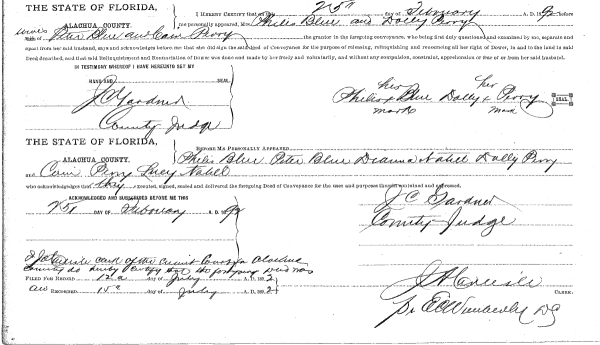 THE STATE OF FLORIDA,
ALACHUA COUNTY.
I HEREBY CERTIFY that on 25th day of February A. D. 1892 before
me personally appeared, Mrs. Philis Blue and Dolly Perry
wives of Peter Blue and Cam Perry the grantor in the foregoing conveyance, who being first duly questioned and examined by me, separate and
apart from her said husband, say and acknowledge before me that she did sign the said deed of Conveyance for the purpose of releasing, relinquishing and renouncing all her right of Dower, in and to the land in said
Deed described, and that said Relinquishment and Renunciation of Dower was done and made by her freely and voluntarily, and without any compulsion, constraint, apprehension or fear of or from her said husband.
IN TESTIMONY WHEREOF I HAVE HEREUNTO SET MY
HAND AND SEAL
J C Gardner
County Judge
her her
Philis x Blue Dolly x Perry SEAL
mark mark
THE STATE OF FLORIDA,
ALACHUA COUNTY.
BEFORE ME PERSONALLY APPEARED
Philis Blue Peter Blue Dianna Nabell Dolly Perry
and Cam Perry Lucy Nabell
who acknowledges that they executed, signed, sealed and delivered the foregoing Deed of Conveyance for the uses and purposes therein contained and expressed.
ACKNOWLEDGED AND SUBSCRIBED BEFORE ME THIS
25th DAY OF February A. D. 1892
J C Gardner
County Judge
clerk of the Circuit Court for Alachua
County do hereby certify that the foregoing deed was
FILED FOR RECORD 12 day of July A. D. 1892
RECORDED 15 day of July A. D. 1892
CLERK.
Wimberly D C